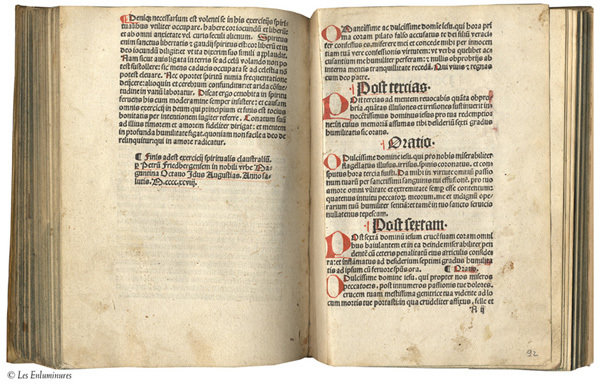 Deniq; necessarium est volenti se in his exercitijs spiri-
tualibus vtiliter occupare. habere cor iocundū et liberū:
et ab omni anxietate vel curia seculi alienum. Spiritus
enim sanctus libertatis et gaudij spiritus est: cor liberū et in
deo iocundū diligit: vt ita dixerim suis similib9 a plaudit.
Nam sicut auis ligata in terris se ad celū volando non po-
test sustollere: sic mens caducis occupata se ad celestia nō
potest eleuare. Nec oportet spiritū nimia frequentatione
in vanū laboratur. Discat ergo
omnis exercicij in deum qui principium et finis est tocius
bonitatis per intentionem iugiter referre. Conatum suū
ad illius timorem et amorem fideliter dirigat: et mentem
in profunda humilitate figat: quoniam non facile a deo de-
relinquitur qui in amore radicatur.
Finis adest exercicij spiritualis claustraliū.
per Petrū Friedbergensem in nobili vrbe Ma-
guntina Octauo Idus Augustias. Anno sa-
lutis. M.cccc.xcviij.
Mansuetissime ac dulcissime domine iesu, qui hora pri-
ma coram pilato falso accusatus te dei filiū verací-
ter confessus es, miserere mei et concede mihi per innocen-
tiam tuā vere virtuosum, et verba quelibet ac-
cusantium me humiliter perferam: et nullis obprobrijs ab
interna mentis tranquillitate recedā. Qui viuis et regnas
cum deo patre.
Post tercias.
Post tercias ad mentem reuocabis quāta obpro-
bria, quātas illusiones et irrisiones sustinuerit in-
nocētissimus dominus iesus pro tua redemptio-
ne: in cuius memoriā assumas tibi desideriū sexti gradus
humilitatis sic orans.
Oratio.
O Dulcissime domine iesu, qui pro nobis miserabiliter
flagellatus illusus, irrisus, spinis coronatus, et con-
sputus hora tercia fuisti. Da mihi in virtute omniū passio-
num tuarū per sanctissimi sanguinis tui effusionē, pro tuo
amore omni vilitate et extremitate semper esse contentum:
quatenus intuitu peccatorū meorum, me et indignū ope-
rarium tuū humiliter sentiā: et tamē in tuo sancto seruicio
nullatenus tepescam.
Post sextam.
Post sextā dominū iesum crucē suam coram omni-
bus baiulantem et in ea deinde miserabiliter pen-
dentē cū ceteris penalitatū eius articulis conside-
ra: et instāmatus ad desiderium septimi gradus humilita-
tis ad ipsum cū feruore spūs ora. Oratio.
O Dulcissime domine iesu, qui propter nos miseros
peccatores, post innumeros passionis tue dolores,
crucem tuam mestissima genitrice tua vidente ad lo-
cum mortis tue portasti: in qua crudeliter affixus, felle et
A ij
92
© Les Enluminures